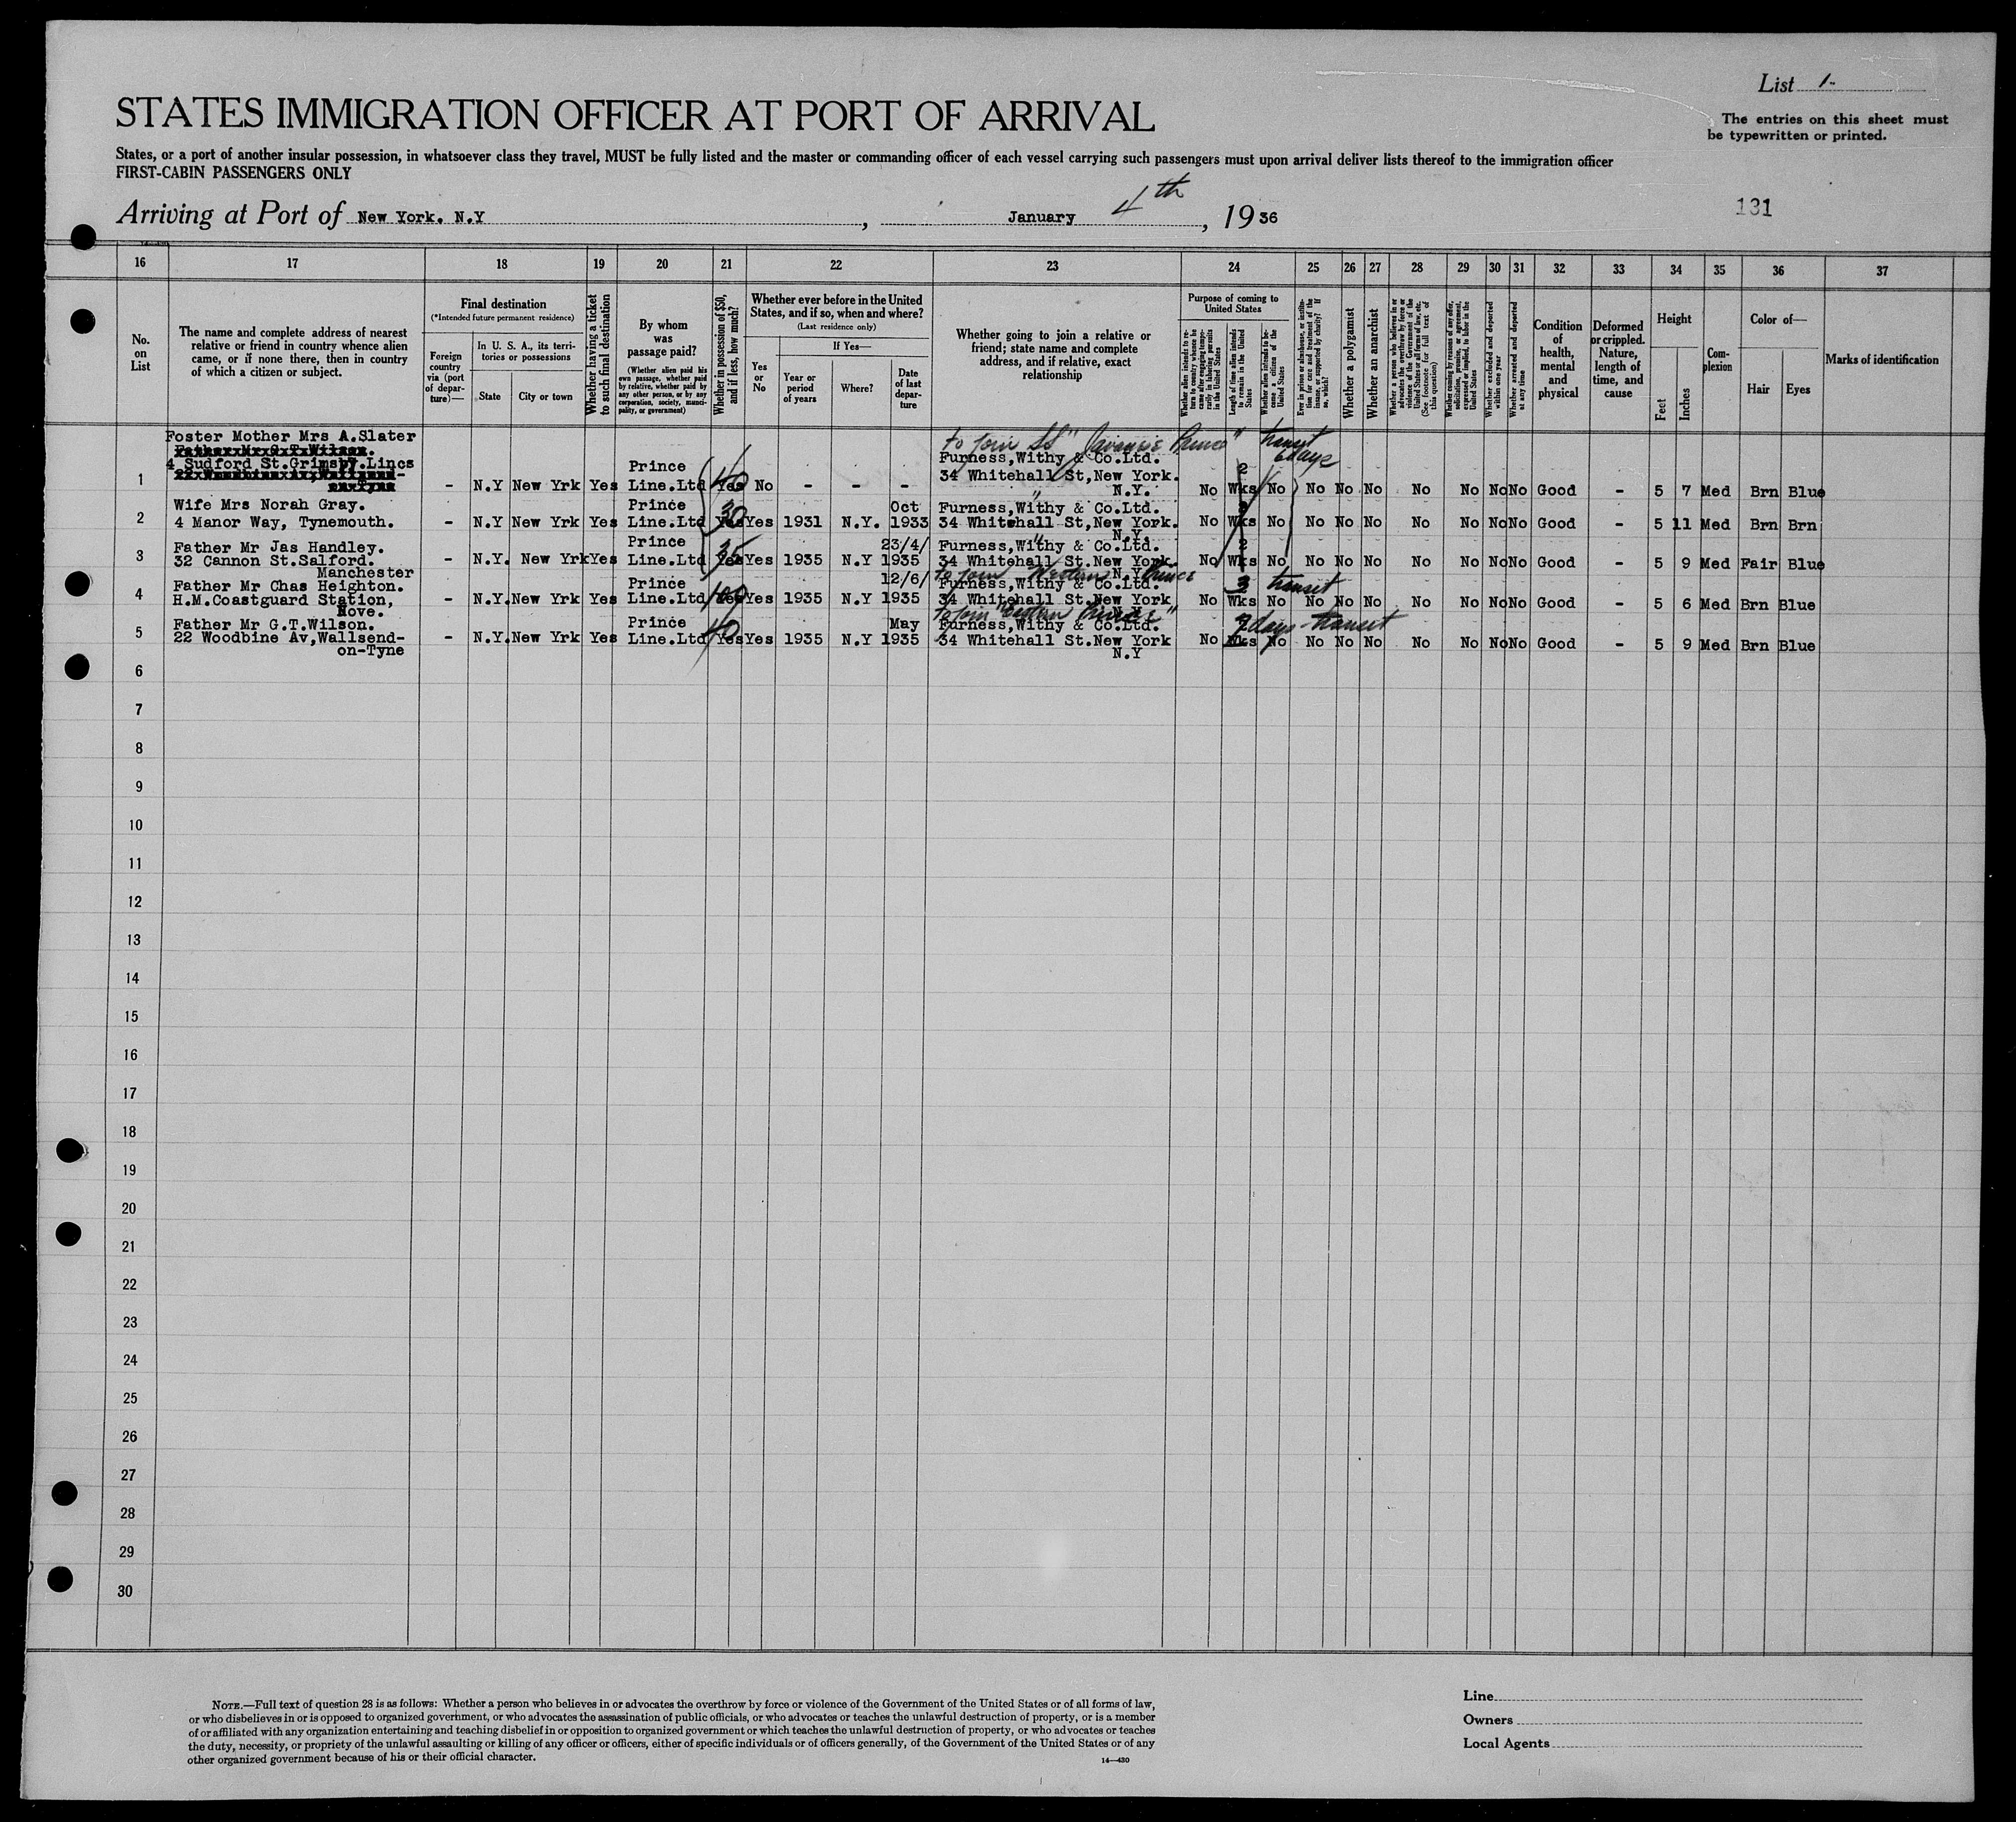 List 1-
STATES IMMIGRATION OFFICER AT PORT OF ARRIVAL
The entries on this sheet must
be typewritten or printed.
States, or a port of another insular possession, in whatsoever class they travel, MUST be fully listed and the master or commanding officer of each vessel carrying such passengers must upon arrival deliver lists thereof to the immigration officer
FIRST-CABIN PASSENGERS ONLY
Arriving at Port of New York. N.Y , January 4th , 1936
131
16 17 18 19 20 21 22 23 24 25 26 27 28 29 30 31 32 33 34 35 36 37
No.
on
List
The name and complete address of nearest
relative or friend in country whence alien
came, or if none there, then in country
of which a citizen or subject.
Final destination
(*Intended future permanent residence)
Foreign
country
via (port
of depar-
ture)—
In U. S. A., its terri-
tories or possessions
State
City or town
Whether having a ticket
to such final destination
By whom
was
passage paid?
(Whether alien paid his
own passage, whether paid
by relative, whether paid by
any other person, or by any
corporation, society, munici-
pality, or government)
Whether in possession of $50,
and if less, how much?
Whether ever before in the United
States, and if so, when and where?
(Last residence only)
Yes
or
No
If Yes—
Year or
period
of years
Where?
Date
of last
depar-
ture
Whether going to join a relative or
friend; state name and complete
address, and if relative, exact
relationship
Purpose of coming to
United States
Whether alien intends to re-
turn to country whence he
came after engaging tempo-
rarily in laboring pursuits
in the United States
Length of time alien intends
to remain in the United
States
Whether alien intends to be-
come a citizen of the
United States
Ever in prison or almshouse, or institu-
tion for care and treatment of the
insane, or supported by charity? If
so, which?
Whether a polygamist
Whether an anarchist
Whether a person who believes in or
advocates the overthrow by force or
violence of the Government of the
United States or all forms of law, etc.
(See footnote for full text of
this question)
Whether coming by reasons of any offer,
solicitation, promise, or agreement,
expressed or implied, to labor in the
United States
Whether excluded and deported
within one year
Whether arrested and deported
at any time
Condition
of
health,
mental
and
physical
Deformed
or crippled.
Nature,
length of
time, and
cause
Height
Feet
Inches
Com-
plexion
Color of—
Hair
Eyes
Marks of identification
Foster Mother Mrs A.Slater
4 Sudford St.Grimsby.Lincs
to join SS "Javanese Prince" transit
6 days
1 - N.Y New Yrk Yes Prince Line.Ltd Yes 40 No - - - Furness,Withy & Co.Ltd. 34 Whitehall St,New York. N.Y. No 2 Wks No No No No No No No No Good - 5 7 Med Brn Blue
Wife Mrs Norah Gray.
2 4 Manor Way, Tynemouth. - N.Y New Yrk Yes Prince Line.Ltd Yes 30 Yes 1931 N.Y. Oct 1933 " Furness,Withy & Co.Ltd. 34 Whitehall St,New York. N.Y. No Wks No No No No No No No No Good - 5 11 Med Brn Brn
Father Mr Jas Handley.
3 32 Cannon St.Salford. Manchester - N.Y. New Yrk Yes Prince Line.Ltd Yes 35 Yes 1935 N.Y 23/4/1935 " Furness,Withy & Co.Ltd. 34 Whitehall St.New York. N.Y No 2 Wks No No No No No No No No Good - 5 9 Med Fair Blue
to join Western Prince transit
Father Mr Chas Heighton.
4 H.M.Coastguard Station, Hove. - N.Y. New Yrk Yes Prince Line.Ltd Yes 100 Yes 1935 N.Y 12/6/1935 Furness,Withy & Co.Ltd. 34 Whitehall St.New York No Wks No No No No No No No No Good - 5 6 Med Brn Blue
to join "Eastern Prince" days - transit
Father Mr G.T.Wilson.
5 22 Woodbine Av,Wallsend-on-Tyne - N.Y. New Yrk Yes Prince Line.Ltd Yes 40 Yes 1935 N.Y May 1935 Furness,Withy & Co.Ltd. 34 Whitehall St.New York N.Y No Wks No No No No No No No No Good - 5 9 Med Brn Blue
6
7
8
9
10
11
12
13
14
15
16
17
18
19
20
21
22
23
24
25
26
27
28
29
30
NOTE.—Full text of question 28 is as follows: Whether a person who believes in or advocates the overthrow by force or violence of the Government of the United States or of all forms of law,
or who disbelieves in or is opposed to organized government, or who advocates the assassination of public officials, or who advocates or teaches the unlawful destruction of property, or is a member
of or affiliated with any organization entertaining and teaching disbelief in or opposition to organized government or which teaches the unlawful destruction of property, or who advocates or teaches
the duty, necessity, or propriety of the unlawful assaulting or killing of any officer or officers, either of specific individuals or of officers generally, of the Government of the United States or of any
other organized government because of his or their official character.
14—430
Line
Owners
Local Agents